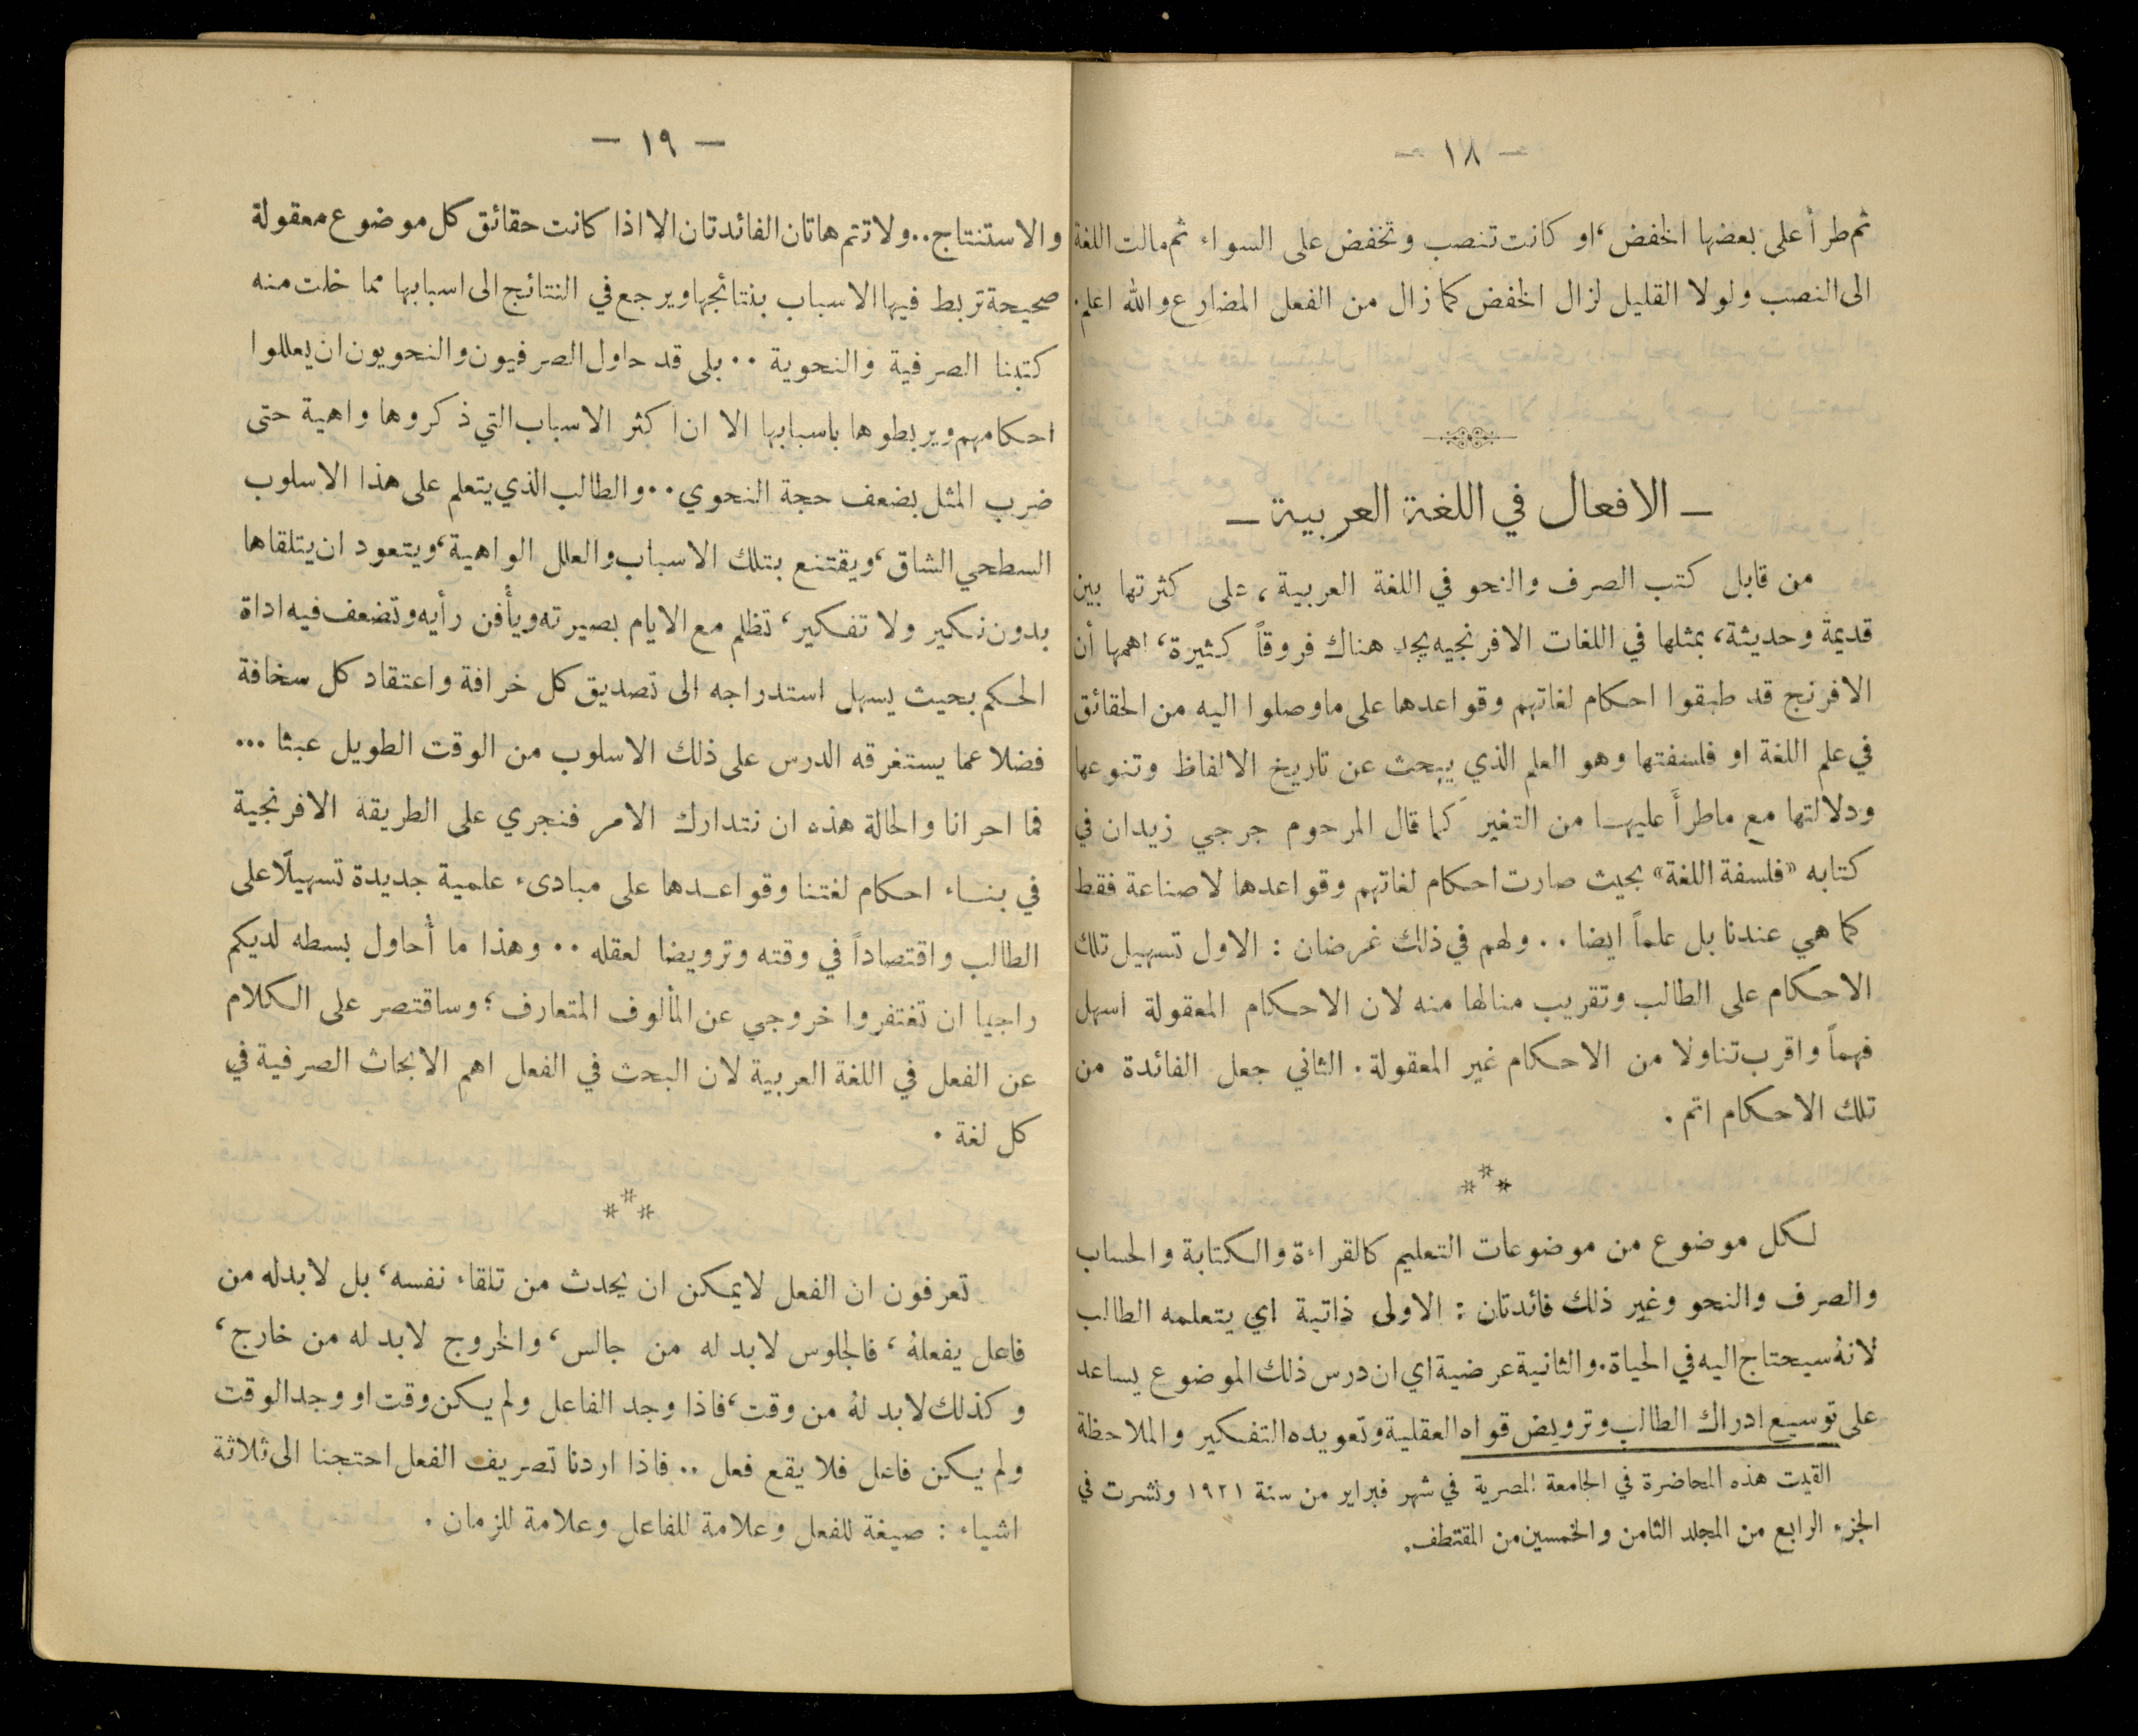 — ١٨ —
ثم طرأ على بعضها الخفض، او كانت تنصب وتخفض على السواء ثم مالت اللغة
الى النصب ولولا القليل لزال الخفض كما زال من الفعل المضارع والله اعلم.
— الافعال في اللغة العربية —
من قابل كتب الصرف والنحو في اللغة العربية، على كثرتها بين
قديمة وحديثة، بمثلها في اللغات الافرنجيه يجد هناك فروقاً كثيرة، اهمها أن
الافرنج قد طبقوا احكام لغاتهم وقواعدها على ماوصلوا اليه من الحقائق
في علم اللغة او فلسفتها وهو العلم الذي يبحث عن تاريخ الالفاظ وتنوعها
ودلالتها مع ماطرأَ عليها من التغير كما قال المرحوم جرجي زيدان في
كتابه «فلسفة اللغة» بحيث صارت احكام لغاتهم وقواعدها لا صناعة فقط
كما هي عندنا بل علماً ايضا .. ولهم في ذلك غرضان : الاول تسهيل تلك
الاحكام على الطالب وتقريب منالها منه لان الاحكام المعقولة اسهل
فهماً واقرب تناولا من الاحكام غير المعقولة. الثاني جعل الفائدة من
تلك الاحكام اتم .
***
لكل موضوع من موضوعات التعليم كالقراءة والكتابة والحساب
والصرف والنحو وغير ذلك فائدتان : الاولى ذاتية اي يتعلمه الطالب
لانهُ سيحتاج اليه في الحياة. والثانية عرضية اي ان درس ذلك الموضوع يساعد
على توسيع ادراك الطالب وترويض قواه العقلية وتعويده التفكير والملاحظة
القيت هذه المحاضرة في الجامعة المصرية في شهر فبراير من سنة ١٩٢١ ونشرت في
الجزء الرابع من المجلد الثامن والخمسين من المقتطف.
— ١٩ —
والاستنتاج.. ولا تتم هاتان الفائدتان الا اذا كانت حقائق كل موضوع معقولة
صحيحة تربط فيها الاسباب بنتائجها ويرجع في النتائج الى اسبابها مما خلت منه
كتبنا الصرفية والنحوية .. بلى قد حاول الصرفيون والنحويون ان يعللوا
احكامهم ويربطوها باسبابها الا ان اكثر الاسباب التي ذكروها واهية حتى
ضرب المثل بضعف حجة النحوي.. والطالب الذي يتعلم على هذا الاسلوب
السطحي الشاق، ويقتنع بتلك الاسباب والعلل الواهية، ويتعود ان يتلقاها
بدون نكير ولا تفكير، تظلم مع الايام بصيرته ويأفن رأيه وتضعف فيه اداة
الحكم بحيث يسهل استدراجه الى تصديق كل خرافة واعتقاد كل سخافة
فضلا عما يستغرقه الدرس على ذلك الاسلوب من الوقت الطويل عبثا ...
فما احرانا والحالة هذه ان نتدارك الامر فنجري على الطريقة الافرنجية
في بناء احكام لغتنا وقواعدها على مبادىء علمية جديدة تسهيلًا على
الطالب واقتصاداً في وقته وترويضا لعقله .. وهذا ما أُحاول بسطه لديكم
راجيا ان تغتفروا خروجي عن المألوف المتعارف ؛ وساقتصر على الكلام
عن الفعل في اللغة العربية لان البحث في الفعل اهم الابحاث الصرفية في
كل لغة .
***
تعرفون ان الفعل لايمكن ان يحدث من تلقاء نفسه، بل لابدله من
فاعل يفعلهُ ، فالجلوس لابد له من جالس، والخروج لابد له من خارج،
وكذلك لابد لهُ من وقت، فاذا وجد الفاعل ولم يكن وقت او وجد الوقت
ولم يكن فاعل فلا يقع فعل .. فاذا اردنا تصريف الفعل احتجنا الى ثلاثة
اشياء : صيغة للفعل وعلامة للفاعل وعلامة للزمان .